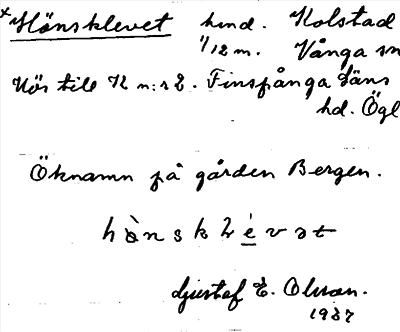 Hönsklevet hmd. Kolstad
1/12 m. Vånga sn
Hör till K n:r 2. Finspånga läns
hd. Ögl
Öknamn på gården Bergen.
Gustaf E. Olsson.
1937